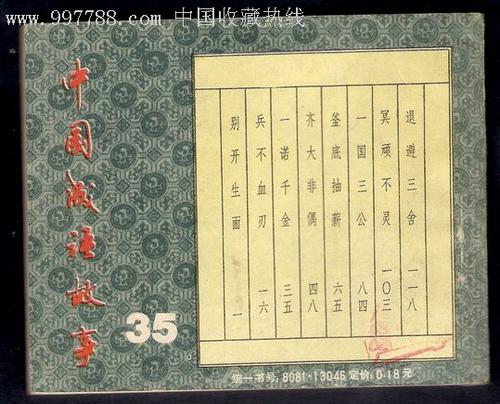 www.997788.com 中国收藏热线
中国成语故事
35
退避三舍 一一八
冥顽不灵 一〇三
一国三公 八四
釜底抽薪 六五
齐大非偶 四八
一诺千金 三五
兵不血刃 一六
别开生面 一
统一书号:8081·13046 定价:0.18元